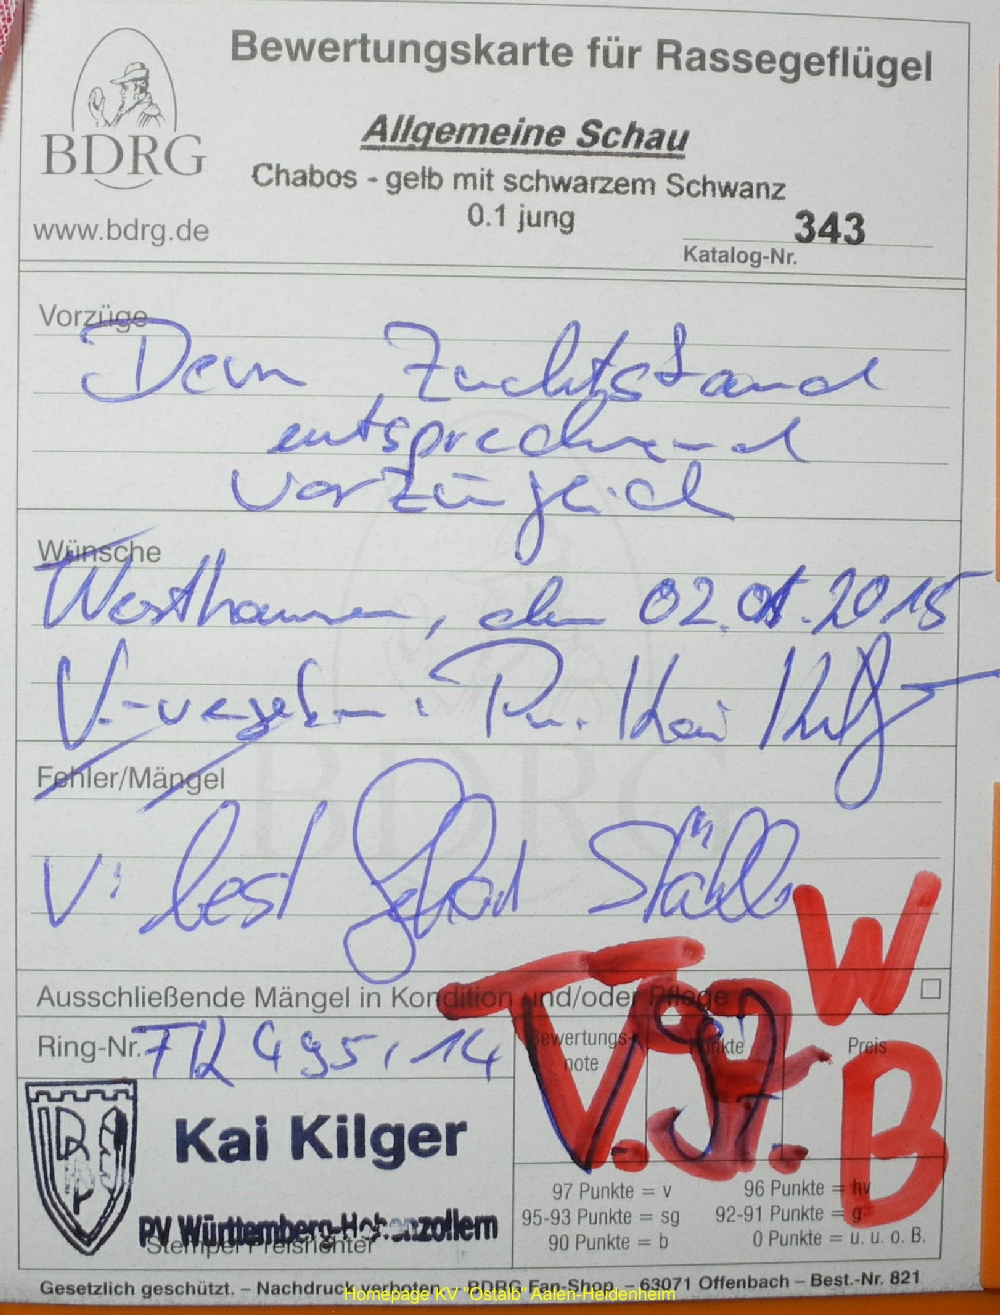 Bewertungskarte für Rassegeflügel
BDRG
www.bdrg.de
Allgemeine Schau
Chabos - gelb mit schwarzem Schwanz
0.1 jung
343
Katalog-Nr.
Vorzüge
Dem Zuchtstand
entsprechend
vorzüglich
Wünsche
Westhausen, den 02.01.2015
V.-vergeben: Pr. Kai Kilger
Fehler/Mängel
V: best
W
B
Ausschließende Mängel in Kondition und/oder Pflege
Ring-Nr.
495, 14
Bewertungsnote
Punkte
Preis
V. 97.
Kai Kilger
PV Württemberg-Hohenzollern
Stempel Preisrichter
97 Punkte = v
96 Punkte = hv
95-93 Punkte = sg
92-91 Punkte = g
90 Punkte = b
0 Punkte = u. u. o. B.
Gesetzlich geschützt. – Nachdruck verboten. – BDRG Fan-Shop – 63071 Offenbach – Best.-Nr. 821
Homepage KV "Ostalb" Aalen-Heidenheim